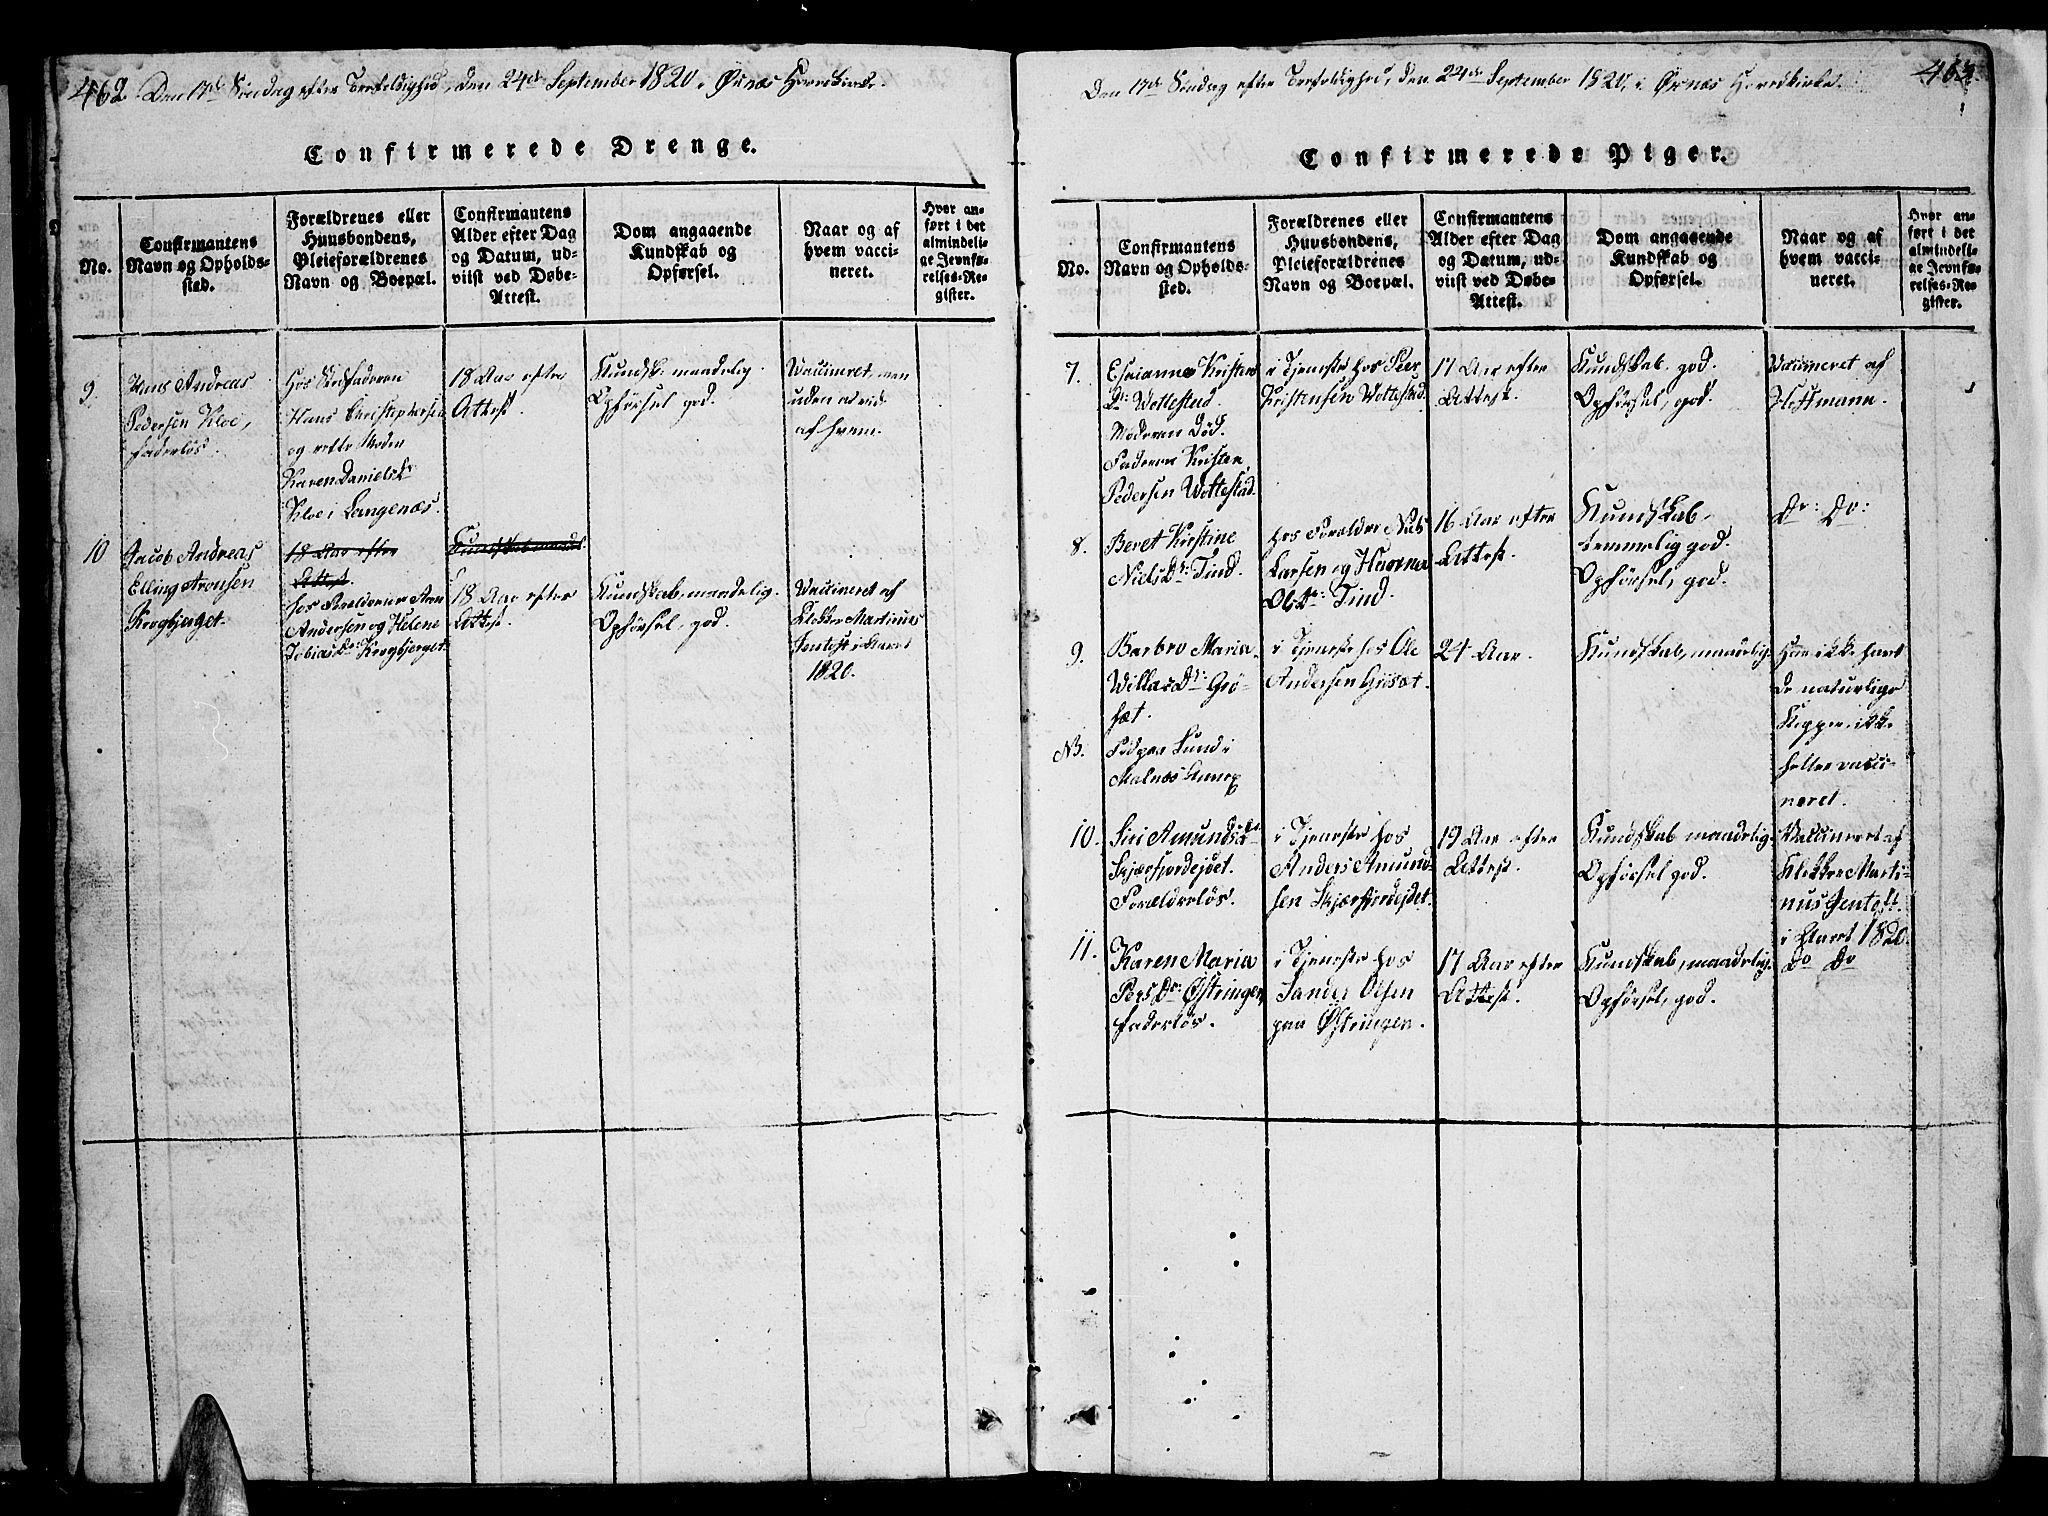 462 Den 17de Søndag efter Trefoldighed, den 24de September 1820 i Øsnæs Hovedkirke.
Confirmerede Drenge.
No.
Confirmantens
Navn og Opholds-
sted.
Forældrenes eller
Huusbondens,
Pleieforældrenes
Navn og Boepæl.
Confirmantens
Alder efter Dag
og Datum, ud-
viist ved Døbe-
Attest.
Dom angaaende
Kundskab og
Opførsel.
Naar og af
hvem vacci-
neret.
Hvor an-
ført i det
almindeli-
ge Jevnfø-
relses-Re-
gister.
9.
Hans Andreas
Pedersen Kloe,
faderløs.
Hos Stedfaderen
Hans Christophersen
og rette Moder
Karen Danielsdr
Kloe i Langenæs.
18 Aar efter
Attest.
Kundsk: maadelig.
Opførsel god.
Vaccineret, men
uden at vide
af hvem.
10
Jacob Andreas
Elling Aronsen
Krogbjerget.
18 Aar efter
Attest
hos Forældrene Aron
Andersen og Helene
Tobiasdr Krogbjerget
Kundskab maadel
18 Aar efter
Attest.
Kundskab, maadelig.
Opførsel, god.
Vaccineret af
Klokker Martinus
Jentoft i Marts
1820.
Den 17de Søndag efter Trefoldighed, den 24de September 1820, i Øsnæs Hovedkirke.
463.
Confirmerede Piger.
No.
Confirmantens
Navn og Opholds-
sted.
Forældrenes eller
Huusbondens,
Pleieforældrenes
Navn og Boepæl.
Confirmantens
Alder efter Dag
og Datum, ud-
viist ved Døbe-
Attest.
Dom angaaende
Kundskab og
Opførsel.
Naar og af
hvem vacci-
neret.
Hvor an-
ført i det
almindeli-
ge Jevnfø-
relses-Re-
gister.
7.
Kristen
Dr: Wottestad.
Moderen død.
Faderen Kristen
Pedersen Wottestad.
i Tjeneste hos Peer
Kristensen Wottestad.
17 Aar efter
Attest.
Kundskab, god.
Opførsel, god.
Vaccineret af
Hoffmann.
8.
Beret Kirstine
Niels Dr: Tind.
hos Forældre Niels
Larsen og
Ol Dr: Tind.
16 Aar efter
Attest.
Kundskab,
temmelig god.
Opførsel, god.
Do: Do:
9.
Barbro Maria
Willas Dr: Grø-
sæt.
i Tjeneste hos Ole
Andersen Grøsæt.
24 Aar.
Kundskab, maadelig.
Har ikke havt
de naturlige
Kopper, ikke
heller vacci-
neret.
NB.
Malnæs Annex
10.
Siri Amunds Dr
Skjærfjordejdet.
Forældreløs.
i Tjeneste hos
Anders Amund-
sen Skjærfjordejdet.
19 Aar efter
Attest.
Kundskab maadelig
Opførsel god.
Vaccineret af
Klokker Marti-
nus Jentoft.
i Marts 1820.
11.
Karen Maria
Pers Dr: Østringen,
faderløs.
i Tjeneste hos
Sander Olsen
paa Østringen.
17 Aar efter
Attest.
Kundskab, maadelig.
Opførsel, god.
Do Do